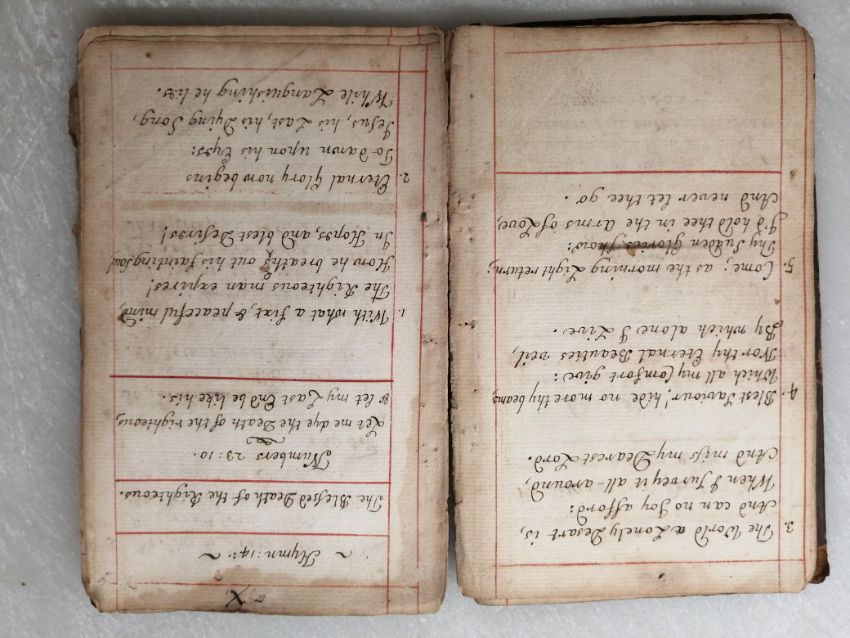 3. The World a Lonely Desart is,
And can no Joy afford:
When I survey it all-around,
And miss my Dearest Lord.
4. Blest Saviour! hide no more thy beams
Which all my Comfort give:
Nor thy Eternal Beauties veil,
By which alone I Live.
5. Come; as the morning Light return;
Thy Sudden Glories show:
I'd hold thee in the arms of Love,
And never let thee go.
X
~ Hymn: 14: ~
The Blessed Death of the Righteous.
Numbers 23:10.
Let me dye the Death of the righteous,
& let my Last End be like his.
1. With what a fixt, & peaceful mind,
The Righteous man expires!
How he breaths out his fainting soul
In Hopes, and blest Desires!
2. Eternal Glory now begins
To dawn upon his Eyes:
Jesus, his Last, his Dying Song,
While Languishing he lies.